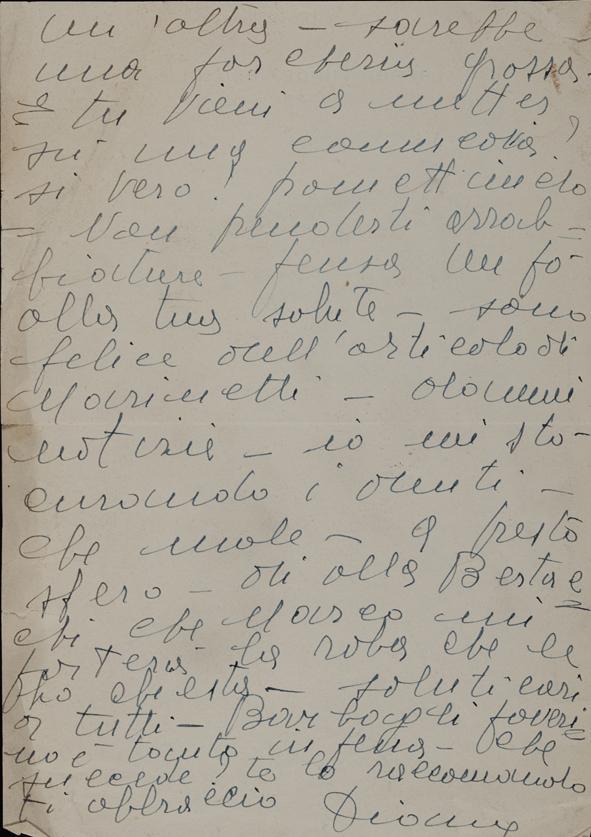 un'altra – sarebbe
una porcheria grossa.
E tu vieni a metter
su una commedia?
si vero! promettimelo
= Non prenderti arrab=
biature – pensa un po'
alla tua salute – sono
felice dell'articolo di
Marinetti – dammi
notizie – io mi sto
curando i denti –
che male – a presto
spero – di alla Berta e
chi che Marco mi
porterà la roba che le
ho chiesta – saluti cari
a tutti – Barbagli poveri=
no è tanto in pena – che
succede? te lo raccomando
ti abbraccio Diana